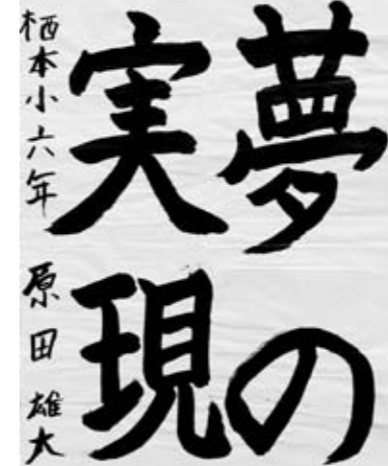 夢の
実現
栖本小六年 原田雄大